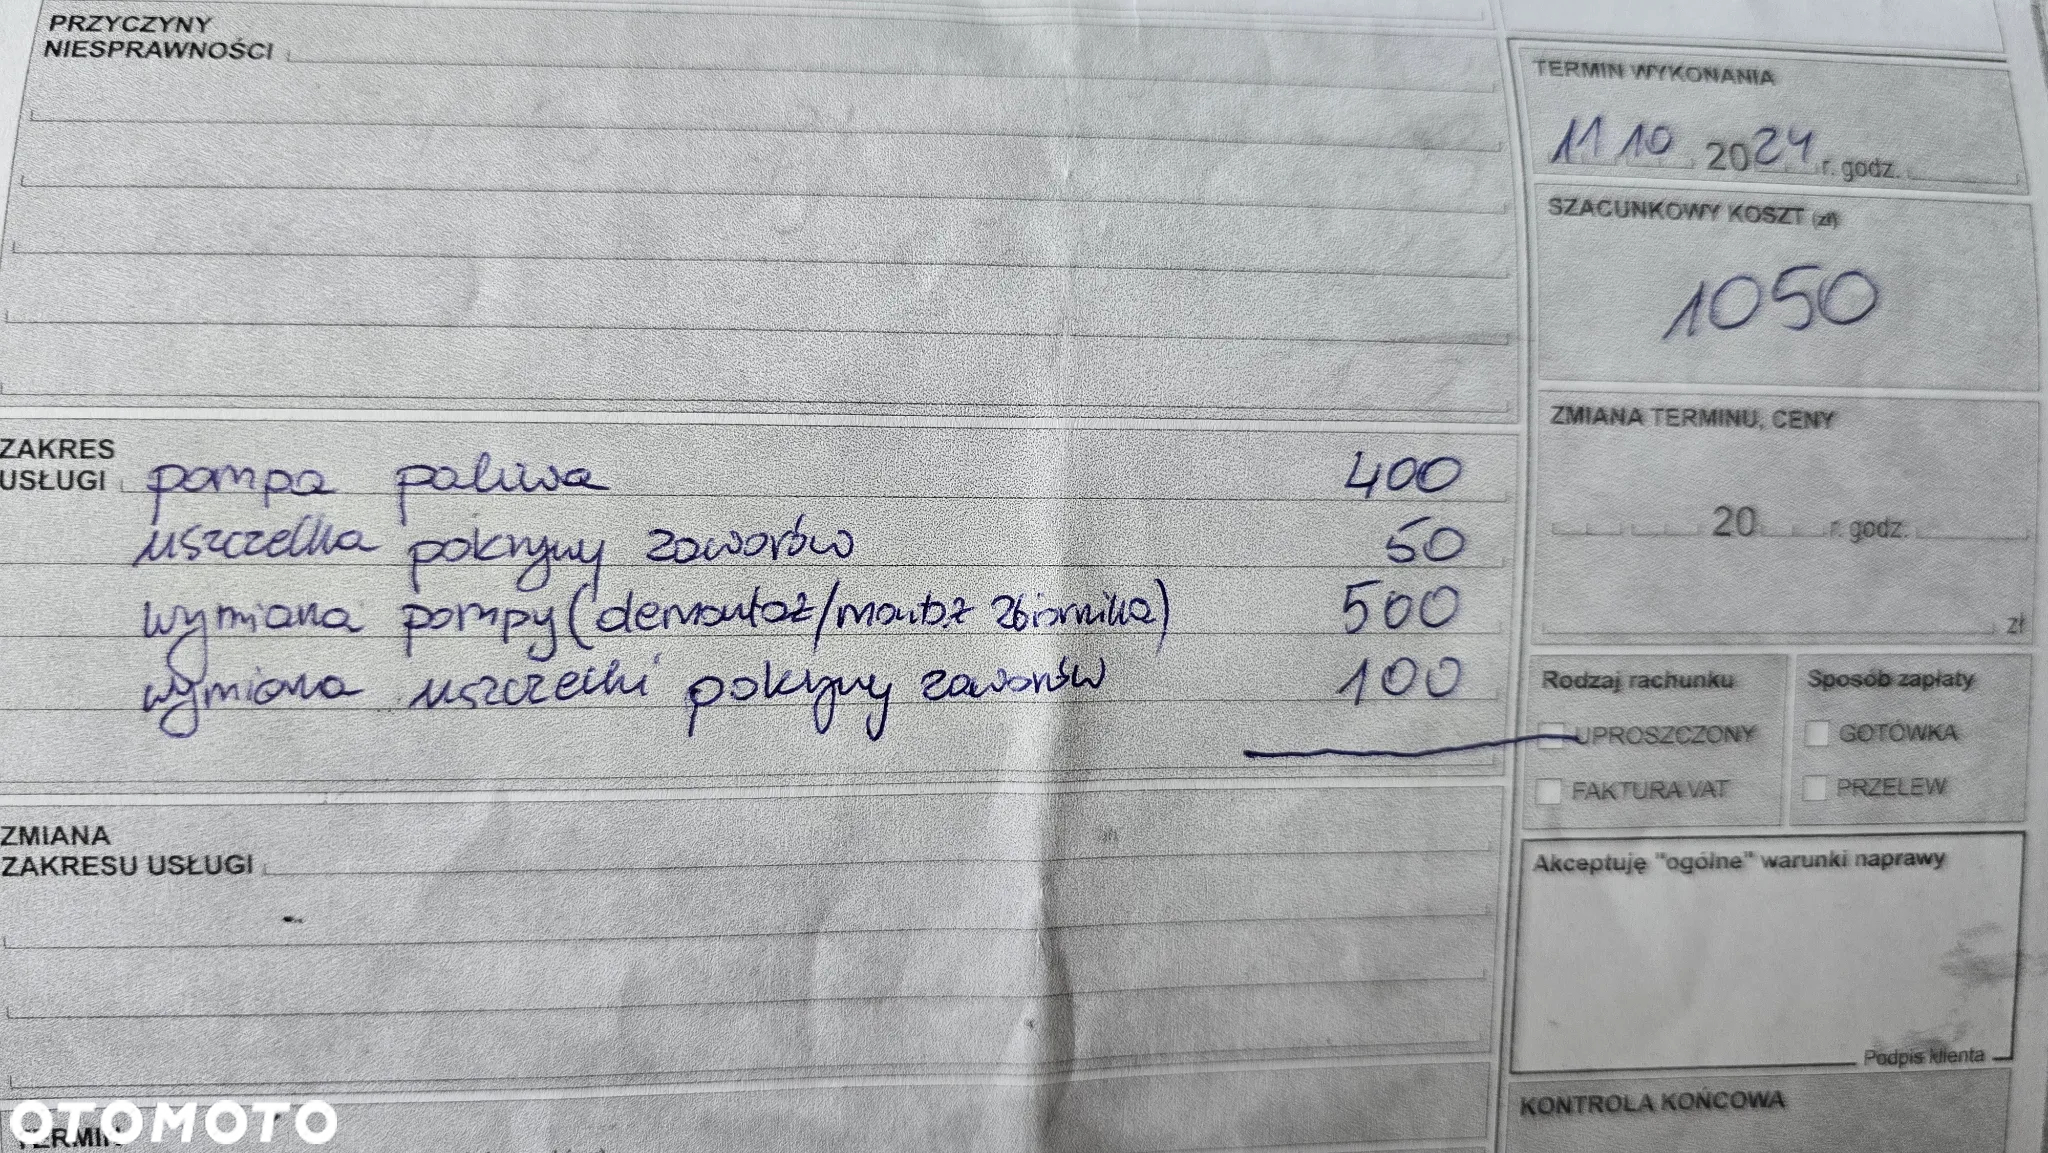 PRZYCZYNY
NIESPRAWNOŚCI
TERMIN WYKONANIA
11 10 2024 r. godz.
SZACUNKOWY KOSZT (zł)
1050
ZMIANA TERMINU, CENY
20 r. godz.
zł
ZAKRES
USŁUGI pompa paliwa 400
uszczelka pokrywy zaworów 50
wymiana pompy (demontaż/montaż zbiornika) 500
wymiana uszczelki pokrywy zaworów 100
Rodzaj rachunku
UPROSZCZONY
FAKTURA VAT
Sposób zapłaty
GOTÓWKA
PRZELEW
ZMIANA
ZAKRESU USŁUGI
Akceptuję "ogólne" warunki naprawy
Podpis klienta
KONTROLA KOŃCOWA
TERMIN
OTOMOTO